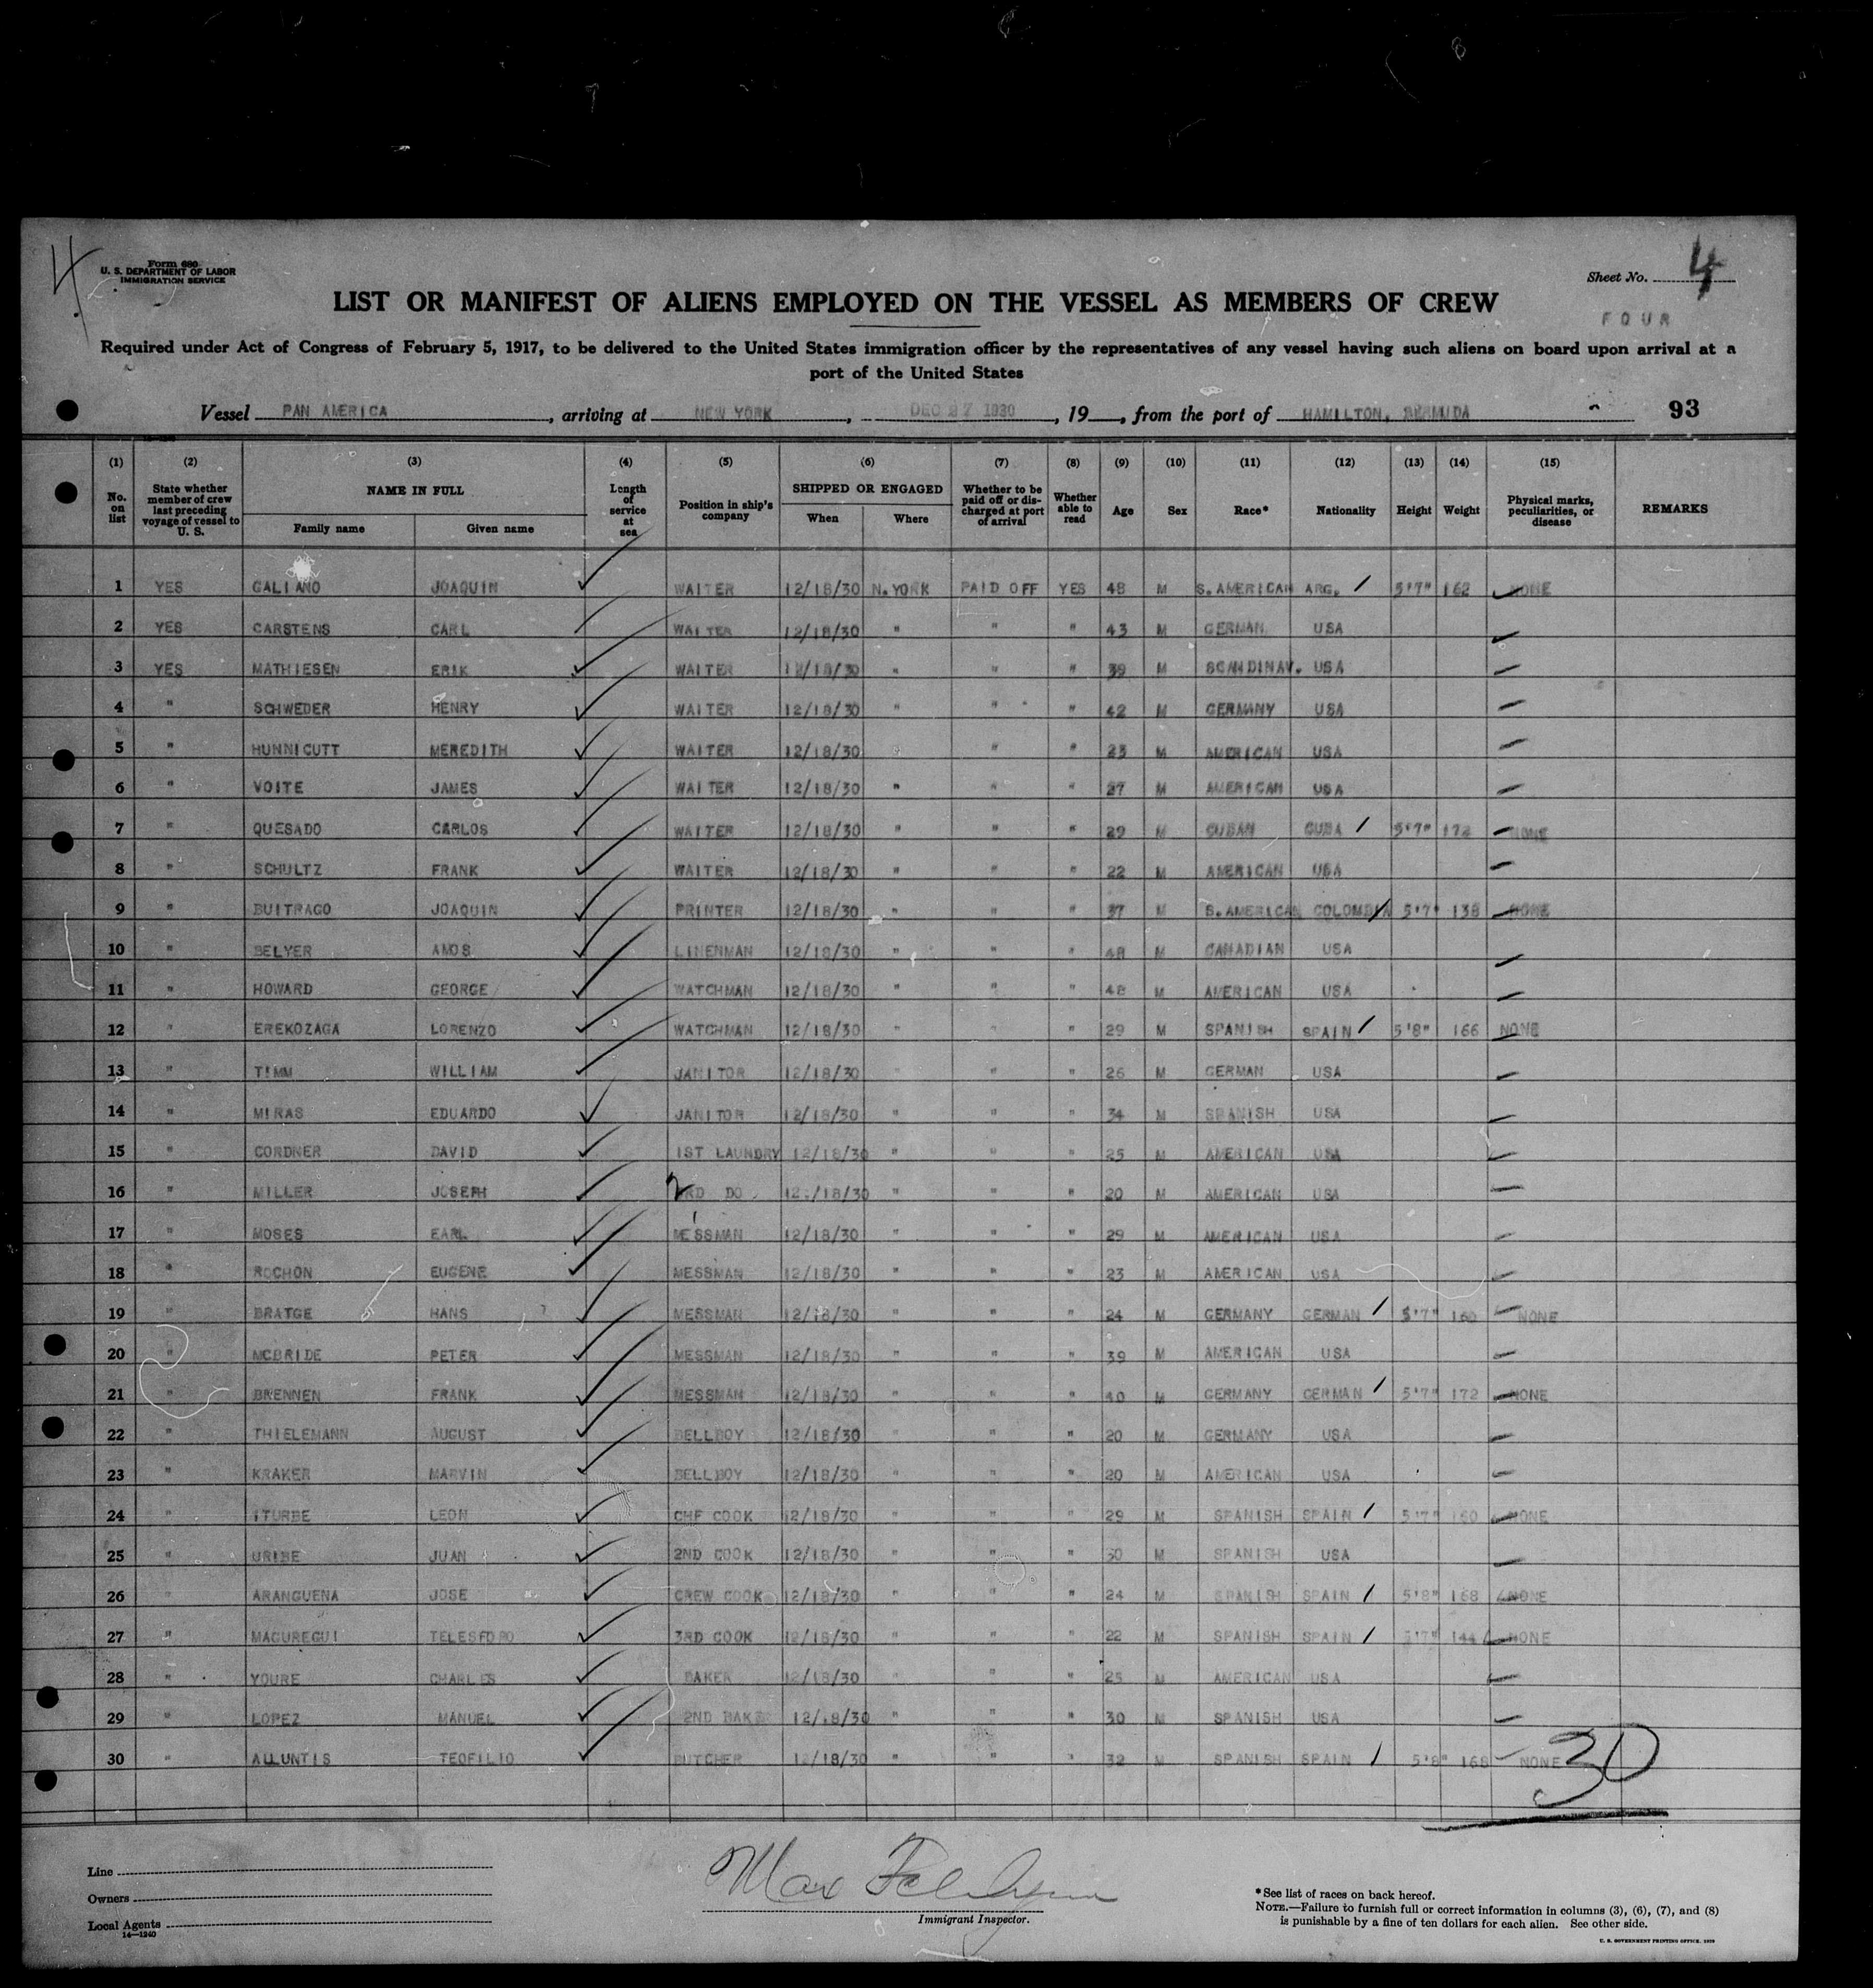 4
Form 680
U. S. DEPARTMENT OF LABOR
IMMIGRATION SERVICE
Sheet No. 4
FOUR
LIST OR MANIFEST OF ALIENS EMPLOYED ON THE VESSEL AS MEMBERS OF CREW
Required under Act of Congress of February 5, 1917, to be delivered to the United States immigration officer by the representatives of any vessel having such aliens on board upon arrival at a
port of the United States
Vessel PAN AMERICA, arriving at NEW YORK, DEC 27 1930, 19, from the port of HAMILTON, BERMUDA 93
(1) (2) (3) (4) (5) (6) (7) (8) (9) (10) (11) (12) (13) (14) (15)
No. on list State whether member of crew last preceding voyage of vessel to U. S. NAME IN FULL Family name Given name Length of service at sea Position in ship's company SHIPPED OR ENGAGED When Where Whether to be paid off or discharged at port of arrival Whether able to read Age Sex Race* Nationality Height Weight Physical marks, peculiarities, or disease REMARKS
1 YES GALIANO JOAQUIN WAITER 12/18/30 N.YORK PAID OFF YES 48 M S.AMERICAN ARG. 5'7" 162 NONE
2 YES CARSTENS CARL WAITER 12/18/30 " " " 43 M GERMAN USA
3 YES MATHIESEN ERIK WAITER 12/18/30 " " " 39 M SCANDINAV. USA
4 " SCHWEDER HENRY WAITER 12/18/30 " " " 42 M GERMANY USA
5 " HUNNICUTT MEREDITH WAITER 12/18/30 " " " 23 M AMERICAN USA
6 " VOITE JAMES WAITER 12/18/30 " " " 27 M AMERICAN USA
7 " QUESADO CARLOS WAITER 12/18/30 " " " 29 M CUBAN CUBA 5'7" 172 NONE
8 " SCHULTZ FRANK WAITER 12/18/30 " " " 22 M AMERICAN USA
9 " BUITRAGO JOAQUIN PRINTER 12/18/30 " " " 37 M S.AMERICAN COLOMBIA 5'7" 138 NONE
10 " BELYER AMOS LINENMAN 12/18/30 " " " 48 M CANADIAN USA
11 " HOWARD GEORGE WATCHMAN 12/18/30 " " " 48 M AMERICAN USA
12 " EREKOZAGA LORENZO WATCHMAN 12/18/30 " " " 29 M SPANISH SPAIN 5'8" 166 NONE
13 " TIMM WILLIAM JANITOR 12/18/30 " " " 26 M GERMAN USA
14 " MIRAS EDUARDO JANITOR 12/18/30 " " " 34 M SPANISH USA
15 " CORDNER DAVID 1ST LAUNDRY 12/18/30 " " " 25 M AMERICAN USA
16 " MILLER JOSEPH 2RD DO. 12/18/30 " " " 20 M AMERICAN USA
17 " MOSES EARL MESSMAN 12/18/30 " " " 29 M AMERICAN USA
18 " ROCHON EUGENE MESSMAN 12/18/30 " " " 23 M AMERICAN USA
19 " BRATGE HANS MESSMAN 12/18/30 " " " 24 M GERMANY GERMAN 5'7" 160 NONE
20 " MCBRIDE PETER MESSMAN 12/18/30 " " " 39 M AMERICAN USA
21 " BRENNEN FRANK MESSMAN 12/18/30 " " " 40 M GERMANY GERMAN 5'7" 172 NONE
22 " THIELEMANN AUGUST BELLBOY 12/18/30 " " " 20 M GERMANY USA
23 " KRAKER MARVIN BELLBOY 12/18/30 " " " 20 M AMERICAN USA
24 " ITURBE LEON CHF COOK 12/18/30 " " " 29 M SPANISH SPAIN 5'7" 160 NONE
25 " URIBE JUAN 2ND COOK 12/18/30 " " " 30 M SPANISH USA
26 " ARANGUENA JOSE CREW COOK 12/18/30 " " " 24 M SPANISH SPAIN 5'8" 168 NONE
27 " MAGUREGUI TELESFORO 3RD COOK 12/18/30 " " " 22 M SPANISH SPAIN 5'7" 144 NONE
28 " YOURE CHARLES BAKER 12/18/30 " " " 25 M AMERICAN USA
29 " LOPEZ MANUEL 2ND BAKE 12/18/30 " " " 30 M SPANISH USA
30 " ALLUNTIS TEOFILIO BUTCHER 12/18/30 " " " 32 M SPANISH SPAIN 5'8" 168 NONE
30
Line
Owners
Local Agents
14—1240
Max
Immigrant Inspector.
*See list of races on back hereof.
NOTE.—Failure to furnish full or correct information in columns (3), (6), (7), and (8)
is punishable by a fine of ten dollars for each alien. See other side.
U. S. GOVERNMENT PRINTING OFFICE: 1929